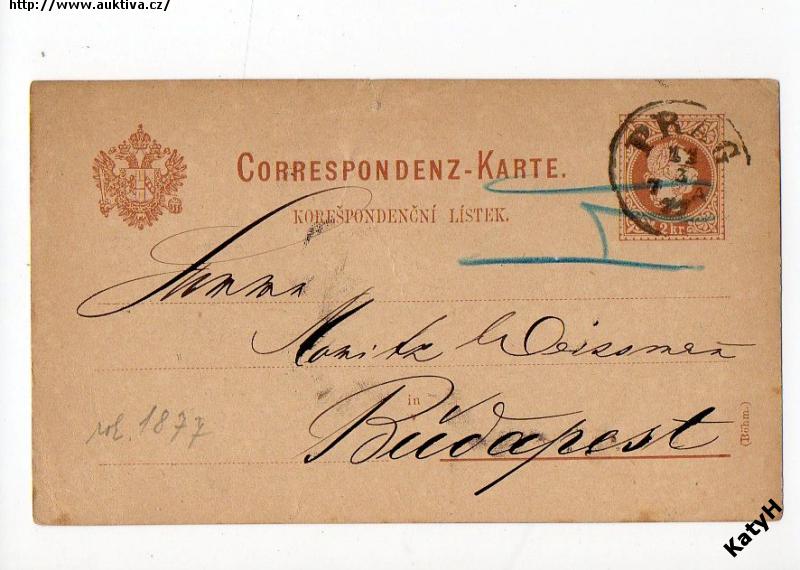 http://www.auktiva.cz/
PRAG
13
3
7
CORRESPONDENZ-KARTE.
KOREŠPONDENČNÍ LÍSTEK.
2 kr
Moritz Weissman
in
Budapest
(Böhm.)
rok. 1877
KatyH